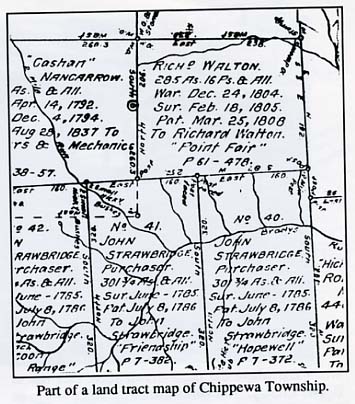 158M
260.3
158M
East
238.
"Coshan"
NANCARROW.
As. & All.
Apr. 14, 1792.
Dec. 4, 1794.
Aug 28, 1837 To
rs & Mechanic
38-57.
RICHD WALTON.
285 As. 16 Ps. & All.
War. Dec. 24, 1804.
Sur. Feb. 18, 1805.
Pat. Mar. 25, 1808
To Richard Walton.
"Point Fair"
P 61-478.
South
North
East
160.
East
160.
160.
No 42.
RAWBRIDGE
rchaser.
As. & All.
June - 1785.
July 8, 1786
John
rawbridge.
Range"
South
North
320.
No 41.
JOHN
STRAWBRIDGE
Purchaser.
301 3/4 As & All.
Sur. June - 1785
Pat. July 8, 1786
To John
Strawbridge.
"Friendship"
P 7-382.
South
North
320.
No 40.
Bradys
JOHN
STRAWBRIDGE.
Purchaser.
301 3/4 As & All.
Sur. June - 1785.
Pat. July 8, 1786
To John
Strawbridge.
"Hopewell"
P 7-372.
South
Post
Part of a land tract map of Chippewa Township.